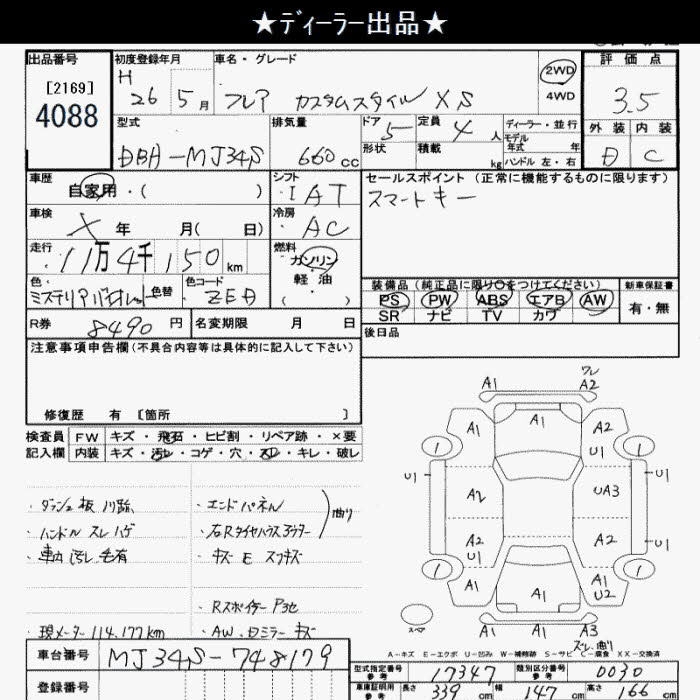 ★ディーラー出品★
出品番号 初度登録年月 車名・グレード 2WD 評価点
[2169] H
4088 26 5月 フレア カスタムスタイル XS 4WD 3.5
型式 排気量 ドア 定員 ディーラー・並行 外装 内装
5 4人 モデル年式 年
DBA-MJ34S 660cc 形状 積載 kg ハンドル 左・右 D C
車歴 シフト セールスポイント(正常に機能するものに限ります)
自家用・( ) ・IAT スマートキー
車検 冷房
X 年 月( 日) ・AC
走行 燃料
11万4千150km ガソリン
軽油
色・ 色替 色コード
ミステリアスバイオレット ZED ( ・ )
装備品(純正品に限り○をつけてください) 新車保証書
PS PW ABS エアB AW 有・無
SR ナビ TV カワ
R券 8490円 名変期限 月 日 後日品
注意事項申告欄(不具合内容等は具体的に記入して下さい)
修復歴 有 [箇所 ]
検査員 FW キズ・飛石・ヒビ割・リペア跡・×要
記入欄 内装 キズ・汚レ・コゲ・穴・スレ・キレ・破レ
・ダッシュ板 ・エンドパネル 曲り
・ハンドル スレ ハゲ ・右Rタイヤハウスアウター
・車内 汚レ 毛有 ・キズ E スリキズ
・Rスポイラー P3色
・現メーター 114,177km ・AW、Dミラー キズ
A1 ワレ A2
A1 A1 A2
1 U1 1
U1 A2 UA3 U1
A2 U1 A2
1 A1 A1 A1 U2 1
スペア A1 A3 スレ 曲り
A-キズ E-エクボ U-凹み W-補修跡 S-サビ C-腐食 XX-交換済
車台番号 MJ34S-748179
登録番号
型式指定番号 参考 17347 類別区分番号 参考 0030
車庫証明用 参考 長さ 339cm 幅 147cm 高さ 166cm